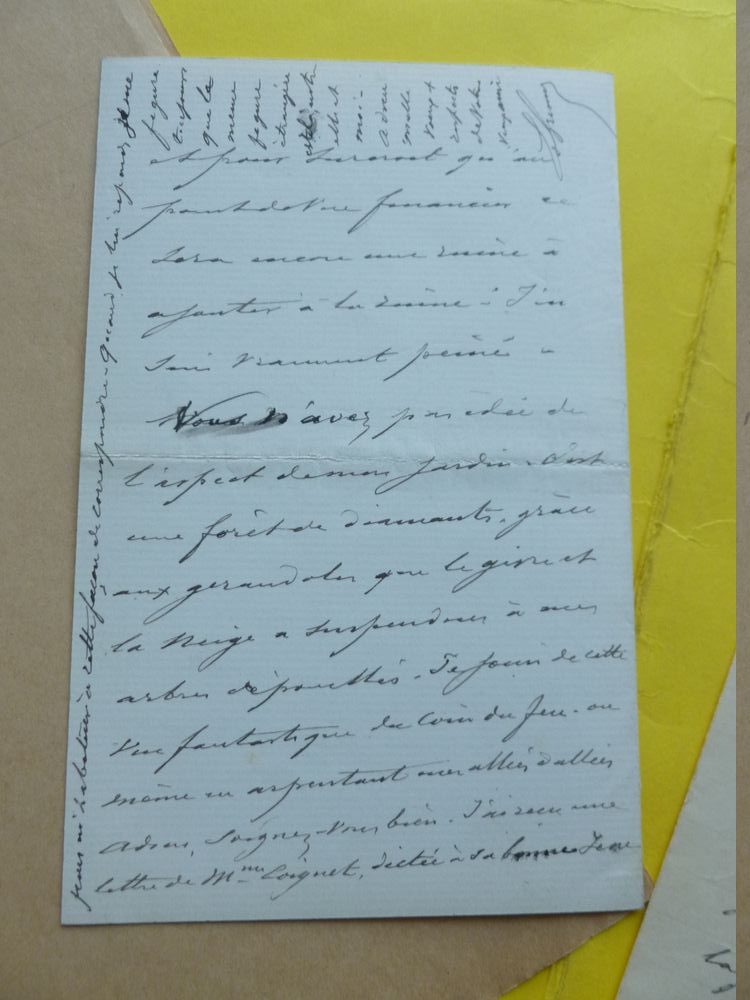 et pour surcroît qu'au
point de vue financier ce
sera encore une ruine à
ajouter à la ruine. J'en
suis vraiment peiné -
Vous n'avez pas idée de
l'aspect de mon jardin. C'est
une forêt de diamants, grâce
aux girandoles que le givre et
la neige a suspendues à mes
arbres dépouillés. Je jouis de cette
vue fantastique du coin du feu - ou
même en arpentant mes allées
Adieu, soignez-vous bien. J'ai reçu une
lettre de Mme Coignet, dictée à sa bonne
à cette façon de correspondre - Quand je lui réponds, je me
figure
toujours
que la
même
figure
étrangère
est
entre
elle et
moi -
Adieu
mille
vœux
de votre